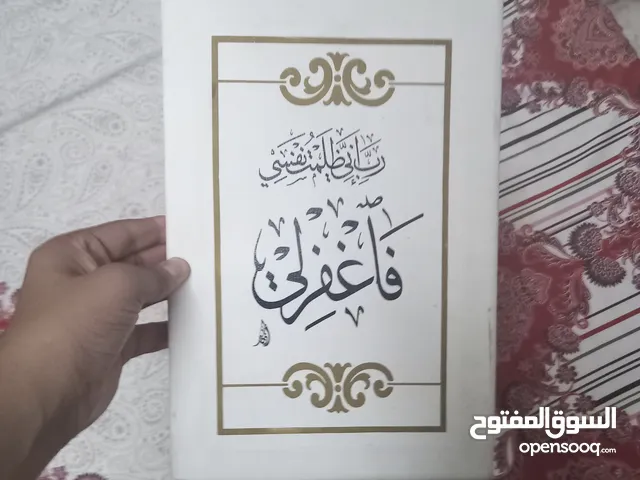 رَبِّ إِنِّي ظَلَمْتُ نَفْسِي
فَاغْفِرْ لِي
السوق المفتوح
opensooq.com